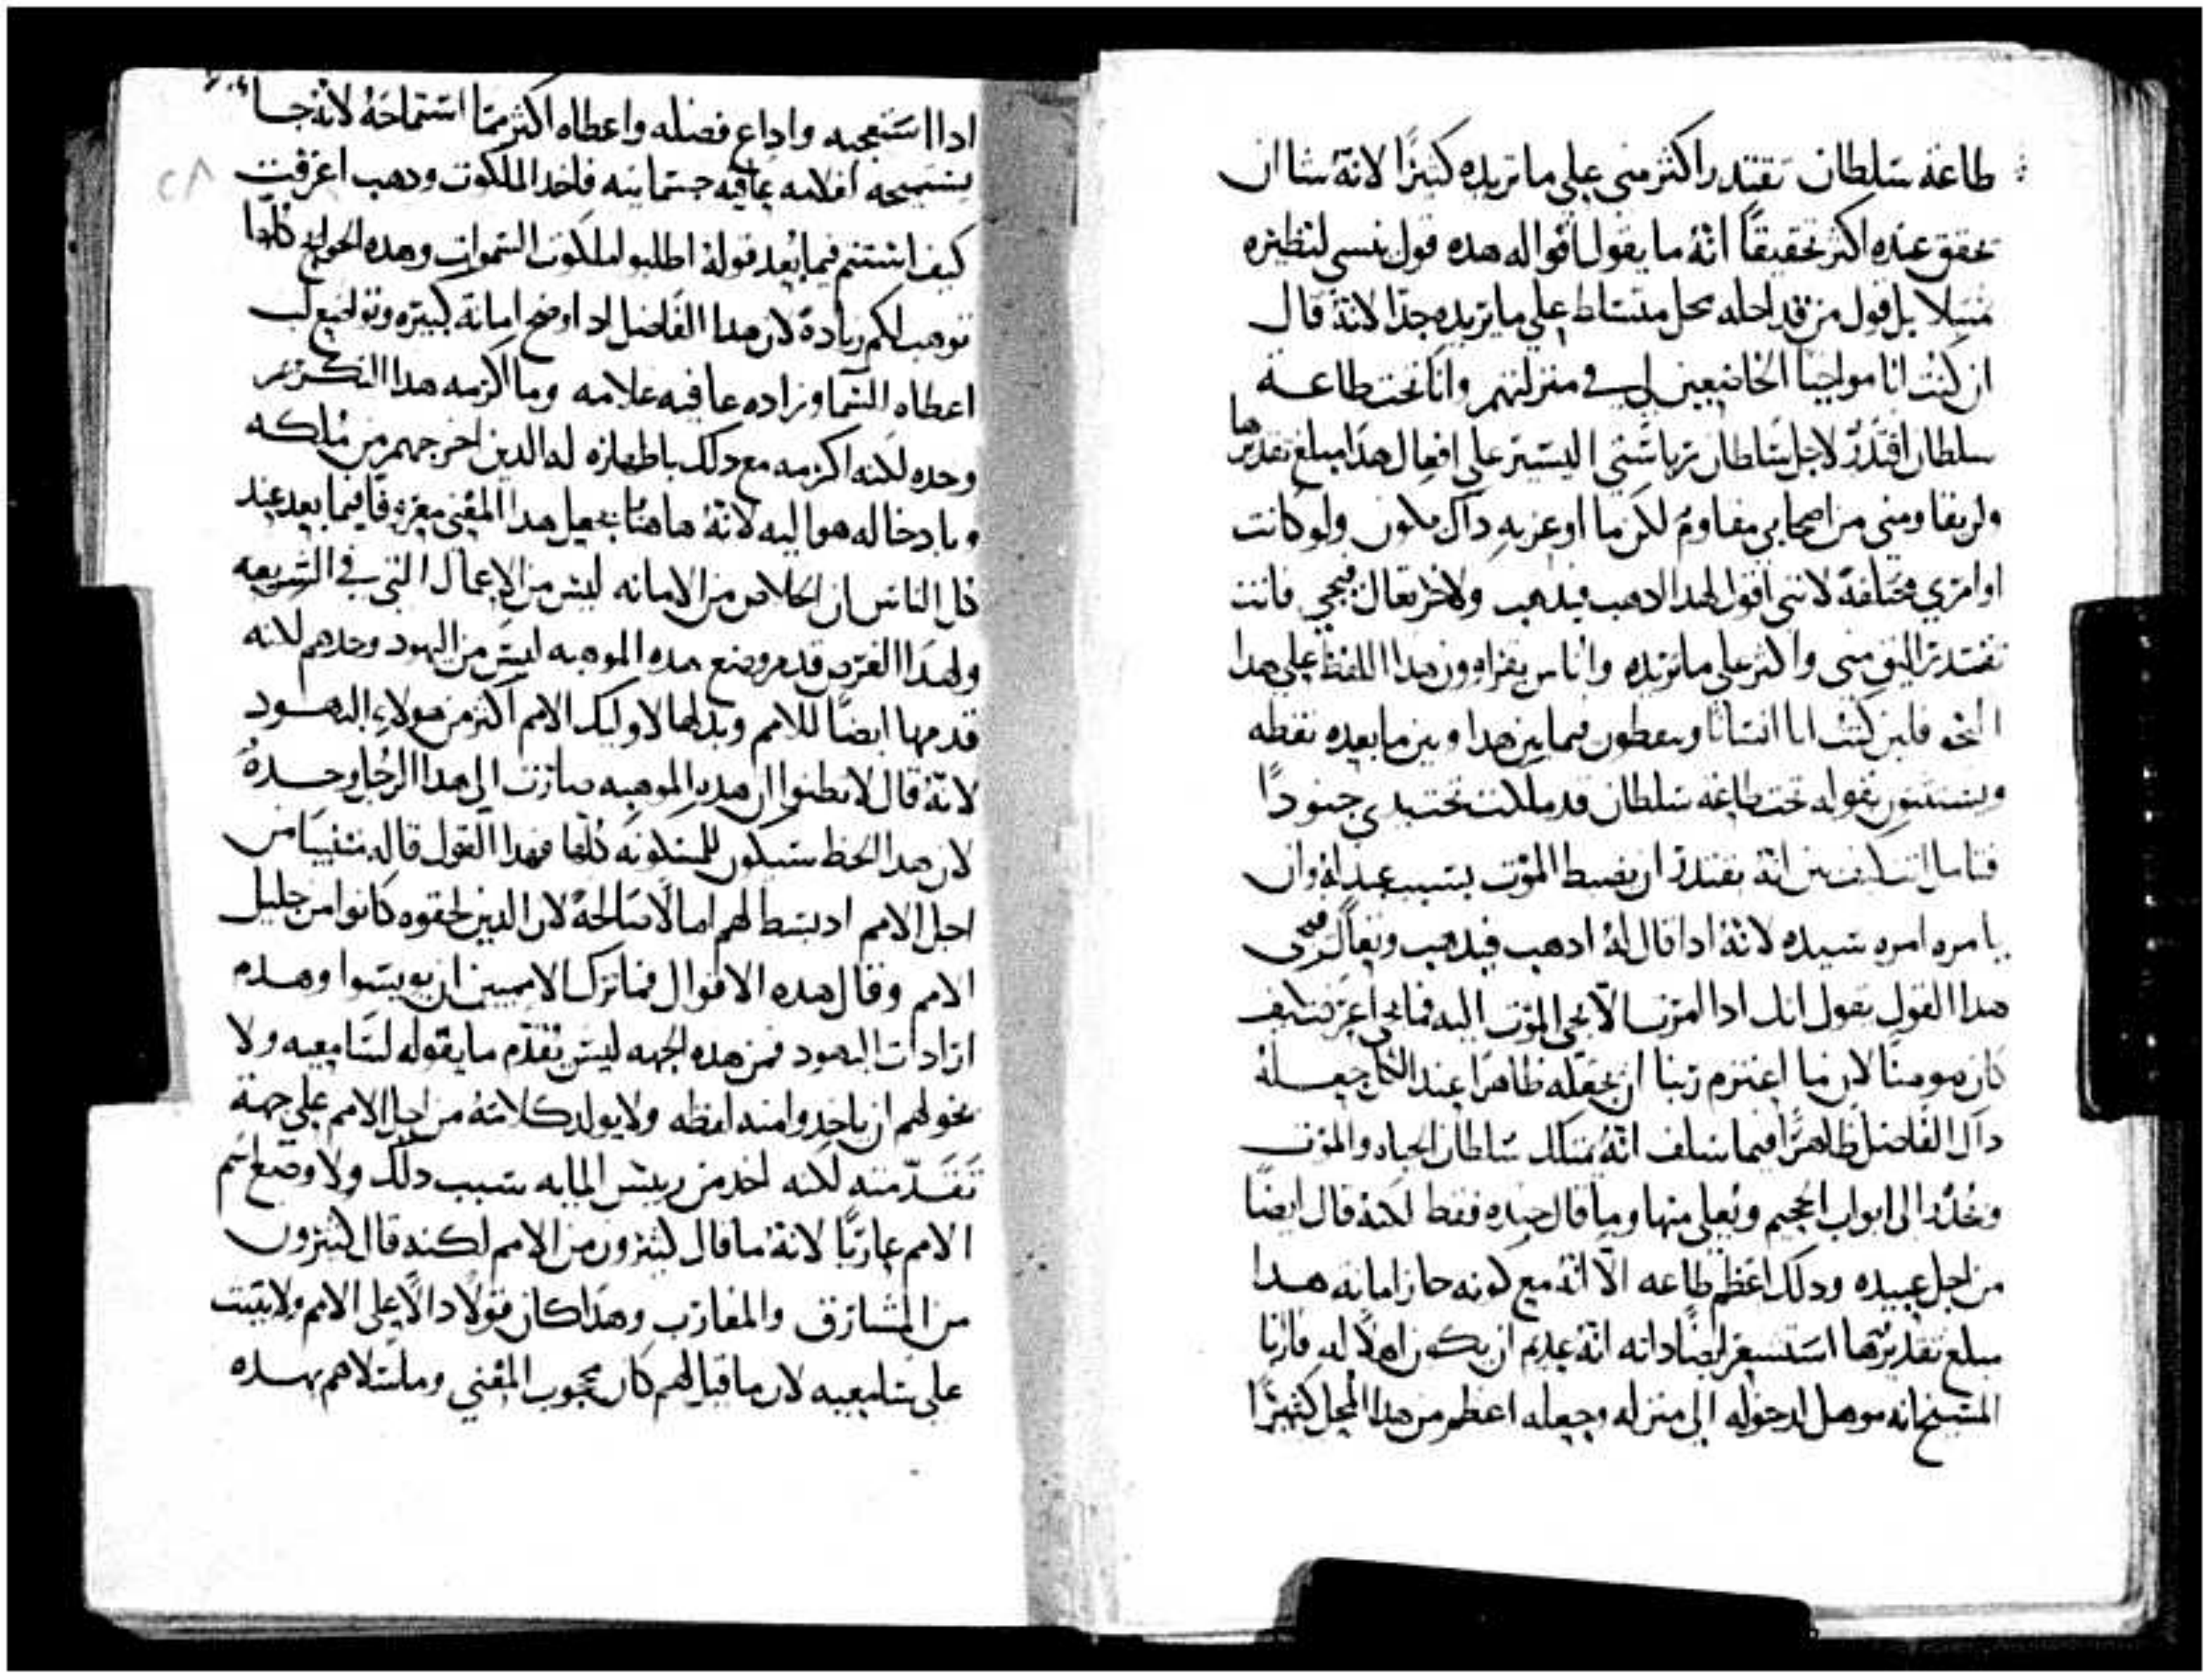 طاعة سلطان تقتدر اكثر مني علي ما تريده كثيرًا لانهٔ شا ان
تحقق عنده اكثر تحقيقًا انهٔ ما يقول اقواله هده قول نبي لنظيره
مثيلا بل قول من قد احله محل متسلط علي ما يريده جدًا لانهٔ قال
ان كنت انا مواجبا الخاضعين لي في منزلتهم وانا تحت طاعة
سلطان اقتدر لاجل سلطان رياستي اليسير علي افعال هدا مبلغ تقديرها
ولن يقاومني من اصحابي مقاوم لكن ما اوعز به داك يكون ولو كانت
اوامري مختلفة لانني اقول لهدا ادهب فيدهب ولاخر تعال فيجي فانت
تقتدر اليق مني واكثر علي ما تريده واناس يقراوون هدا اللفظ علي هدا
النحو فلين كنت انا انسانا وينقطون فيما بين هدا وبين ما بعده نقطه
ويستتنون بقوله تحت طاعة سلطان قد ملكت تحت يدي جنودًا
فتامل انت كيف بين انهٔ يقتدر ان يضبط الموت بسبب عبد له وان
يامره امره سيده لانهٔ ادا قال لهٔ ادهب فيدهب وتعال فيجي
هدا القول يقول انك ادا امرت الا يجي الموت اليه فما يجي اعرفت كيف
كان مومنًا لان ما اعتزم ربنا ان يجعله ظاهرًا عند الكل جعله
داك الفاضل ظاهرًا فيما سلف انهٔ يمتلك سلطان الحياه والموت
ويحدر الي ابواب الجحيم ويعلي منها وما قال جنده فقط لكنهٔ قال ايضًا
من اجل عبيده ودلك اعظم طاعه الا انهٔ مع كونه حاز امانه هدا
مبلغ تقديرها استشعر ايضًا داته انهٔ عدم ان يكون اهلًا له فارانا
المسيح انه موهل لدخوله الي منزله وجعله اعظم من هدا المحل كثيرًا
ادا استعجبه واداع فضله واعطاه اكثر مما استماحهٔ لانهٔ جا
يستميحه لغلامه عافيه جسمانيه فاخد الملكوت ودهب اعرفت
كيف استتم فيما بعد قولهٔ اطلبوا ملكوت السموات وهده الحوايج كلها
توهب لكم زيادة لان هدا الفاضل ادا اوضح امانة كبيره وتواضع لب
اعطاه السما وزاده عافيه غلامه وما اكرمه هدا التكريم
وحده لكنه اكرمه مع دلك باظهاره له الدين اخرجهم من ملكه
وبادخاله هو اليه لانهٔ هاهنا يجعل هدا المعني معروفا فيما بعد عند
كل الناس ان الخلاص من الامانه ليس من الاعمال التي في الشريعه
ولهدا الغرض قدم وضع هده الموهبه ليس من اليهود وحدهم لانه
قدمها ايضًا للامم وبدلها لاوليك الامم اكثر من هولاء اليهود
لانهٔ قال لا تظنوا ان هده الموهبه صارت الي هدا الرجل وحدهٔ
لان هدا الحظ سيكون للمسكونه كلها فهدا القول قاله متنبيا من
اجل الامم اد بسط لهم امالًا صالحهٔ لان الدين لحقوه كانوا من جليل
الامم وقال هده الاقوال فما ترك الامميين ان يويسوا وهدم
ارادات اليهود فمن هده الجهه ليس تقدم ما يقوله لسامعيه ولا
يخولهم ان ياخدوا منه لفظه ولا يولد كلامهٔ من اجل الامم علي جهة
تقدمته لكنه اخد من رييس المايه سبب دلك ولا وضع اسم
الامم عاريًا لانهٔ ما قال كثيرون من الامم لكنه قال كثيرون
من المشارق والمغارب وهدا كان قولًا دالًا علي الامم ولا يثبت
علي سامعيه لان ما قيل لهم كان محجوب المعني وما سلاهم بهده